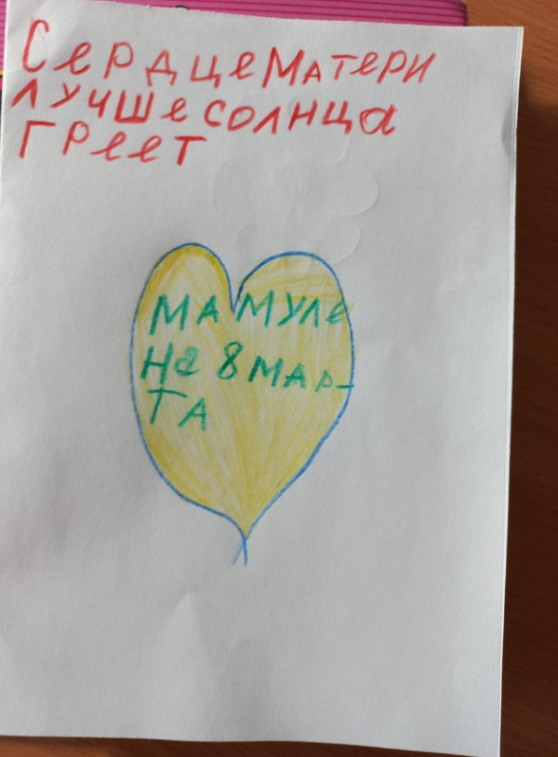 Сердце Матери
лучше солнца
греет
Мамуле
на 8 мар-
та